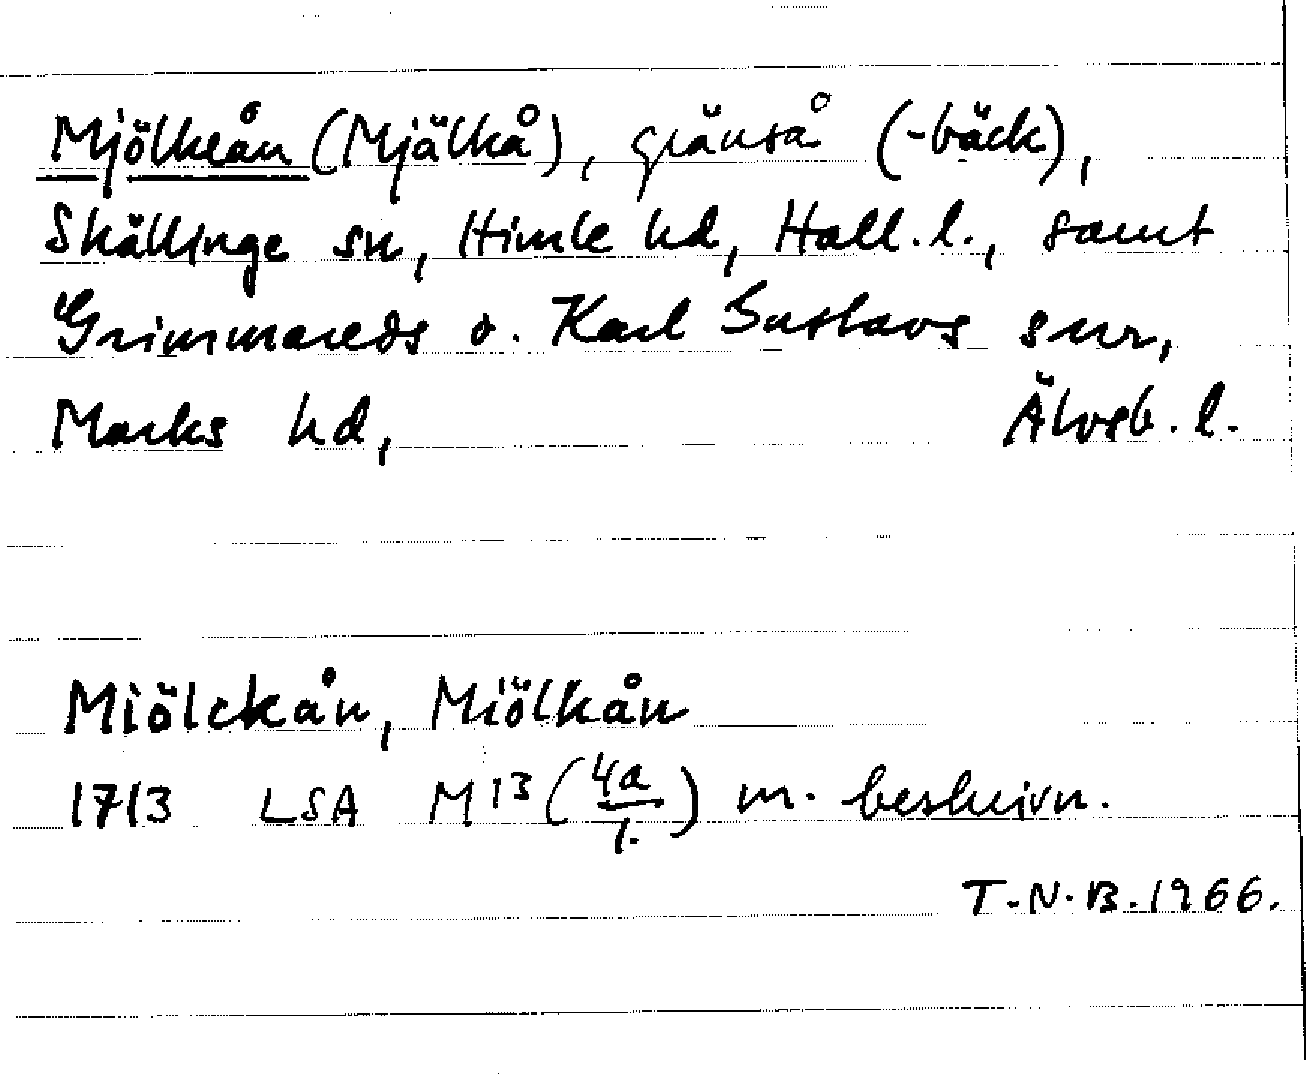 Mjölkeån (Mjälkå), gränså (-bäck),
Skällinge sn, Himle hd, Hall. l., samt
Grimmareds o. Karl Gustavs snr,
Marks hd, Älvsb. l.
Miölckån, Miölkån
1713 LSA M13 (4a/1.) m. beskrivn.
T.N.B. 1966.